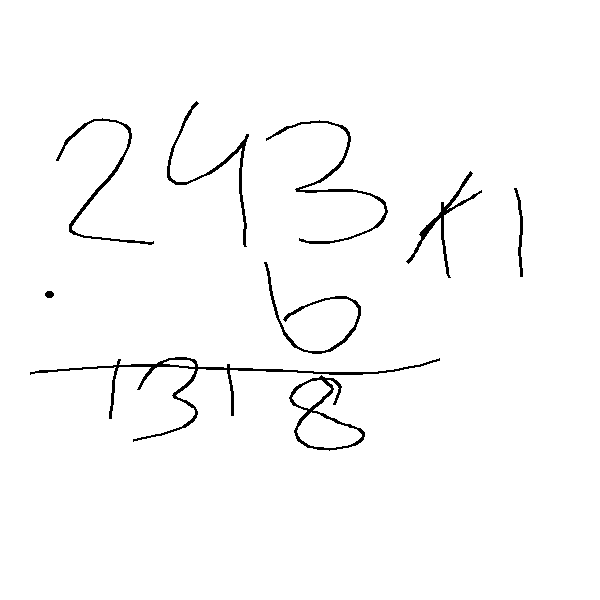 243 +1
· 6
1318